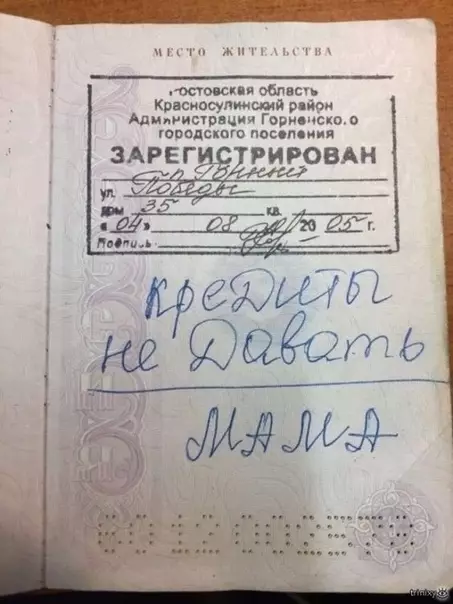 МЕСТО ЖИТЕЛЬСТВА
Ростовская область
Красносулинский район
Администрация Горненского
городского поселения
ЗАРЕГИСТРИРОВАН
п. Горный
ул. Победы
дом 35 кв.
«04» 08 2005 г.
Подпись
кредиты
не давать
МАМА
trinixy